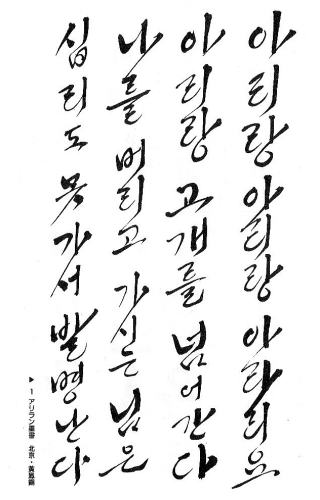 아리랑 아리랑 아라리요
아리랑 고개를 넘어간다
나를 버리고 가시는 님은
십리도 못 가서 발병난다
▶ 1 アリラン墨書 北京・